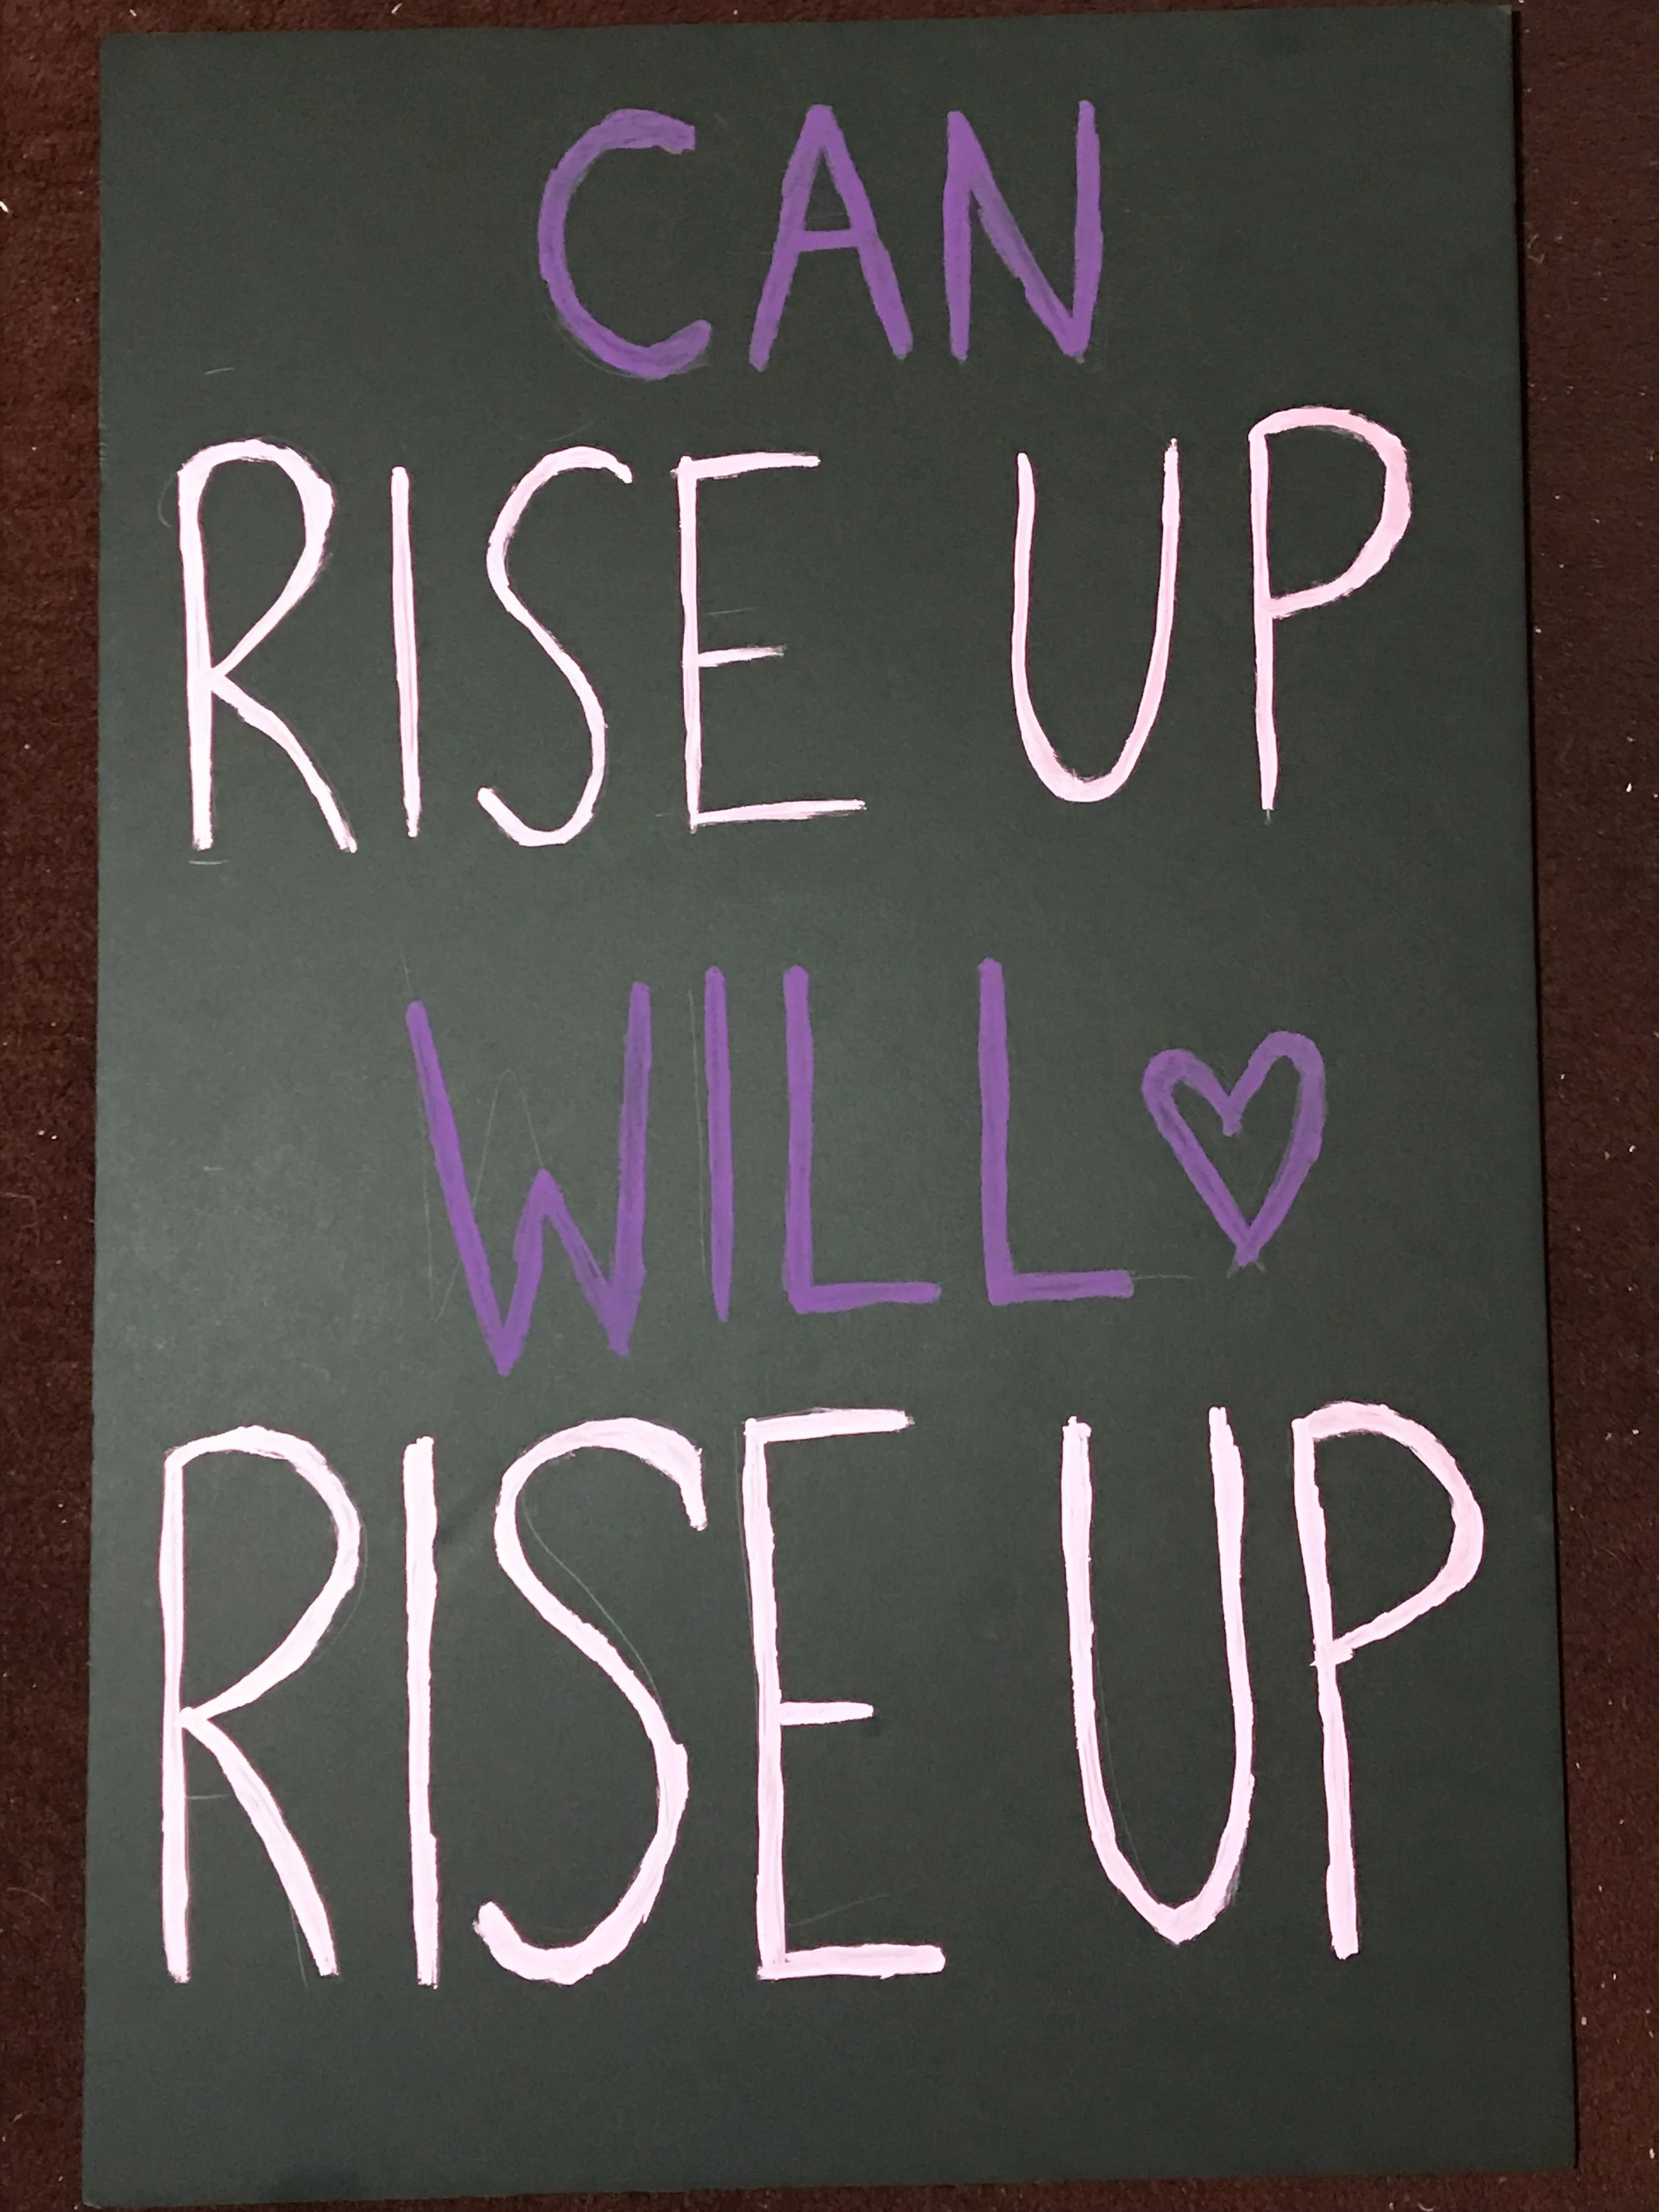 CAN
RISE UP
WILL ♡
RISE UP